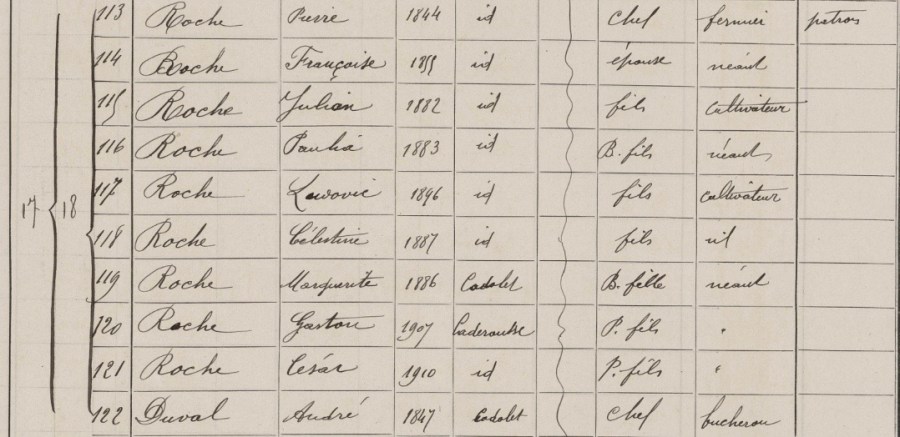 113 Roche Pierre 1844 id chef fermier patron
114 Roche Françoise 1855 id épouse néant
115 Roche Julian 1882 id fils cultivateur
116 Roche Paulia 1883 id B. fils néant
117 Roche Ludovic 1896 id fils cultivateur
17 18
118 Roche Célestine 1887 id fils id
119 Roche Marguerite 1886 Codolet B. fille néant
120 Roche Gaston 1907 Caderousse P. fils "
121 Roche César 1910 id P. fils "
122 Duval André 1847 Codolet chef bucheron